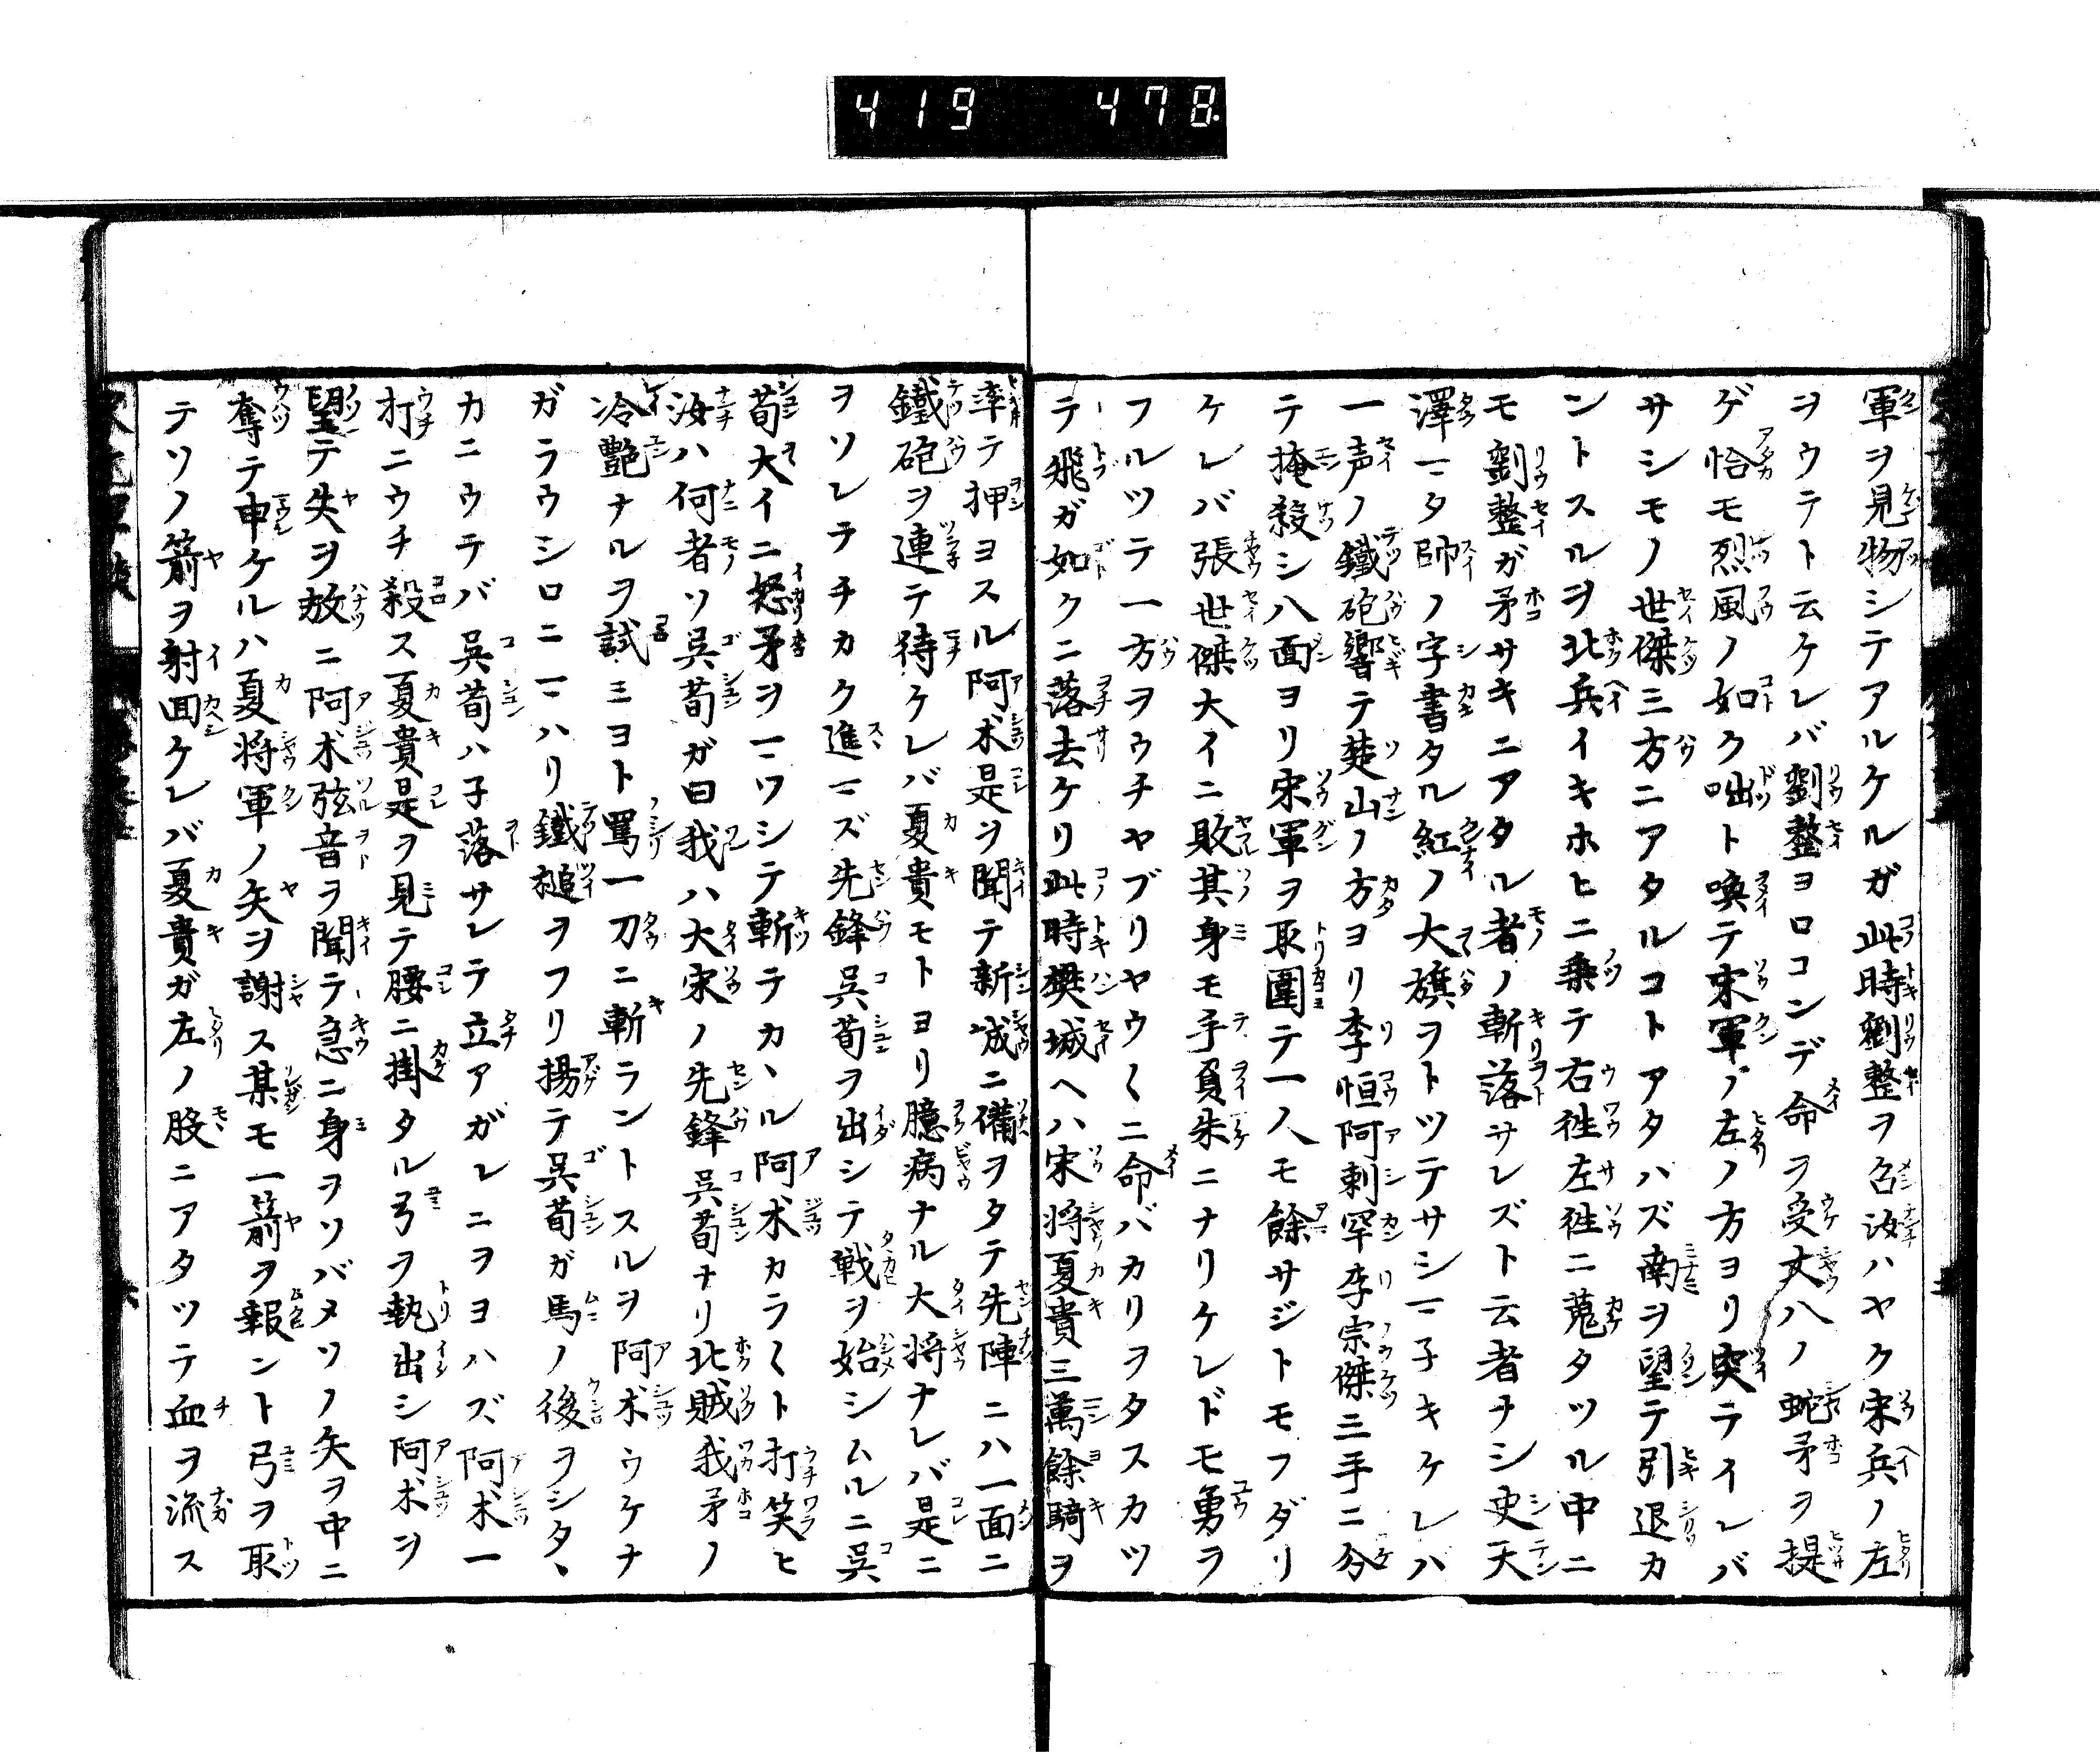 419 478
軍ヲ見物シテアルケルガ此時劉整ヲ召汝ハヤク宋兵ノ左
ヲウテト云ケレバ劉整ヨロコンデ命ヲ受丈八ノ蛇矛ヲ提
ゲ恰モ烈風ノ如ク咄ト喚テ宋軍ノ左ノ方ヨリ突テイレバ
サシモノ世傑三方ニアタルコトアタハズ南ヲ望テ引退カ
ントスルヲ北兵イキホヒニ乗テ右徃左徃ニ蒐タツル中ニ
モ劉整ガ矛サキニアタル者ノ斬落サレズト云者ナシ史天
澤マタ帥ノ字書タル紅ノ大旗ヲトツテサシマ子キケレハ
一声ノ鐵砲響テ楚山ノ方ヨリ李恒阿剌罕李宗傑三手ニ分
テ掩殺シ八面ヨリ宋軍ヲ取圍テ一人モ餘サジトモフダリ
ケレバ張世傑大イニ敗其身モ手負朱ニナリケレドモ勇ヲ
フルツテ一方ヲウチヤブリヤウ〱ニ命バカリヲタスカツ
テ飛ガ如クニ落去ケリ此時樊城ヘハ宋将夏貴三萬餘騎ヲ
率テ押ヨスル阿朮是ヲ聞テ新城ニ備ヲタテ先陣ニハ一面ニ
鐵砲ヲ連テ待ケレバ夏貴モトヨリ臆病ナル大将ナレバ是ニ
ヲソレテチカク進マズ先鋒呉荀ヲ出シテ戦ヲ始シムルニ呉
荀大イニ怒矛ヲマワシテ斬テカヽル阿朮カラ〱ト打笑ヒ
汝ハ何者ソ呉荀ガ曰我ハ大宋ノ先鋒呉荀ナリ北賊我矛ノ
冷艶ナルヲ試ミヨト罵一刀ニ斬ラントスルヲ阿朮ウケナ
ガラウシロニマハリ鐵槌ヲフリ揚テ呉荀ガ馬ノ後ヲシタヽ
カニウテバ呉荀ハ子落サレテ立アガレニヲヨハズ阿朮一
打ニウチ殺ス夏貴是ヲ見テ腰ニ掛タル弓ヲ執出シ阿朮ヲ
望テ矢ヲ放ニ阿朮弦音ヲ聞テ急ニ身ヲソバメソノ矢ヲ中ニ
奪テ申ケルハ夏将軍ノ矢ヲ謝ス某モ一箭ヲ報ント弓ヲ取
テソノ箭ヲ射回ケレバ夏貴ガ左ノ股ニアタツテ血ヲ流ス